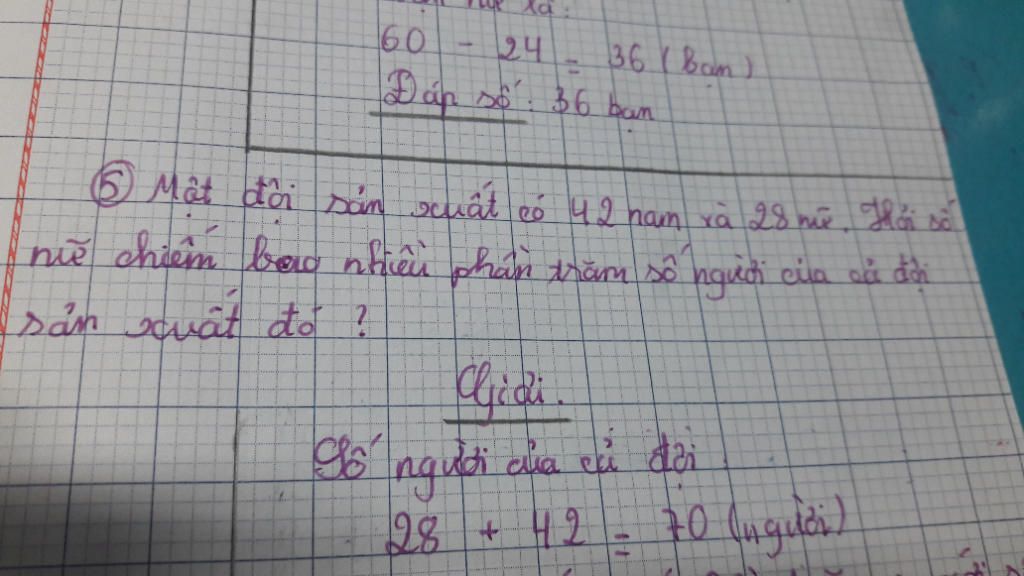 60 - 24 = 36 (bạn)
Đáp số: 36 bạn
⑤ Một đội sản xuất có 42 nam và 28 nữ. Hỏi số
nữ chiếm bao nhiêu phần trăm số người của cả đội
sản xuất đó ?
Giải.
Số người của cả đội
28 + 42 = 70 (người)